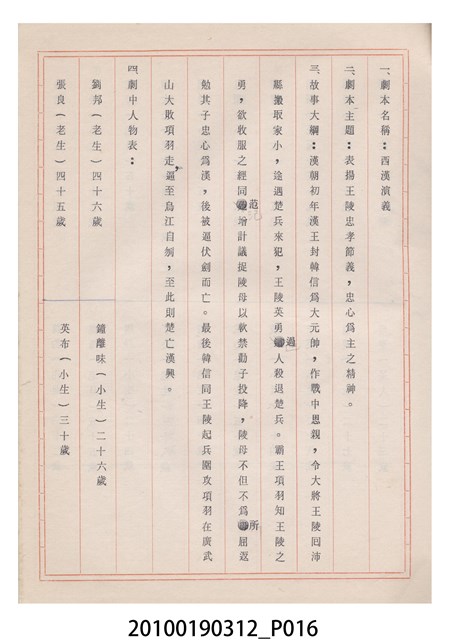 一、劇本名稱：西漢演義
二、劇本主題：表揚王陵忠孝節義，忠心為主之精神。
三、故事大綱：漢朝初年漢王封韓信為大元帥，作戰中思親，令大將王陵回沛
縣搬取家小，途遇楚兵來犯，王陵英勇過人殺退楚兵。霸王項羽知王陵之
勇，欲收服之經同范增計議捉陵母以軟禁勸子投降，陵母不但不為所屈返
勉其子忠心為漢，後被逼伏劍而亡。最後韓信同王陵起兵圍攻項羽在廣武
山大敗項羽走，逼至烏江自刎，至此則楚亡漢興。
四、劇中人物表：
劉邦（老生）四十六歲　鐘離味（小生）二十六歲
張良（老生）四十五歲　英布（小生）三十歲
20100190312_P016